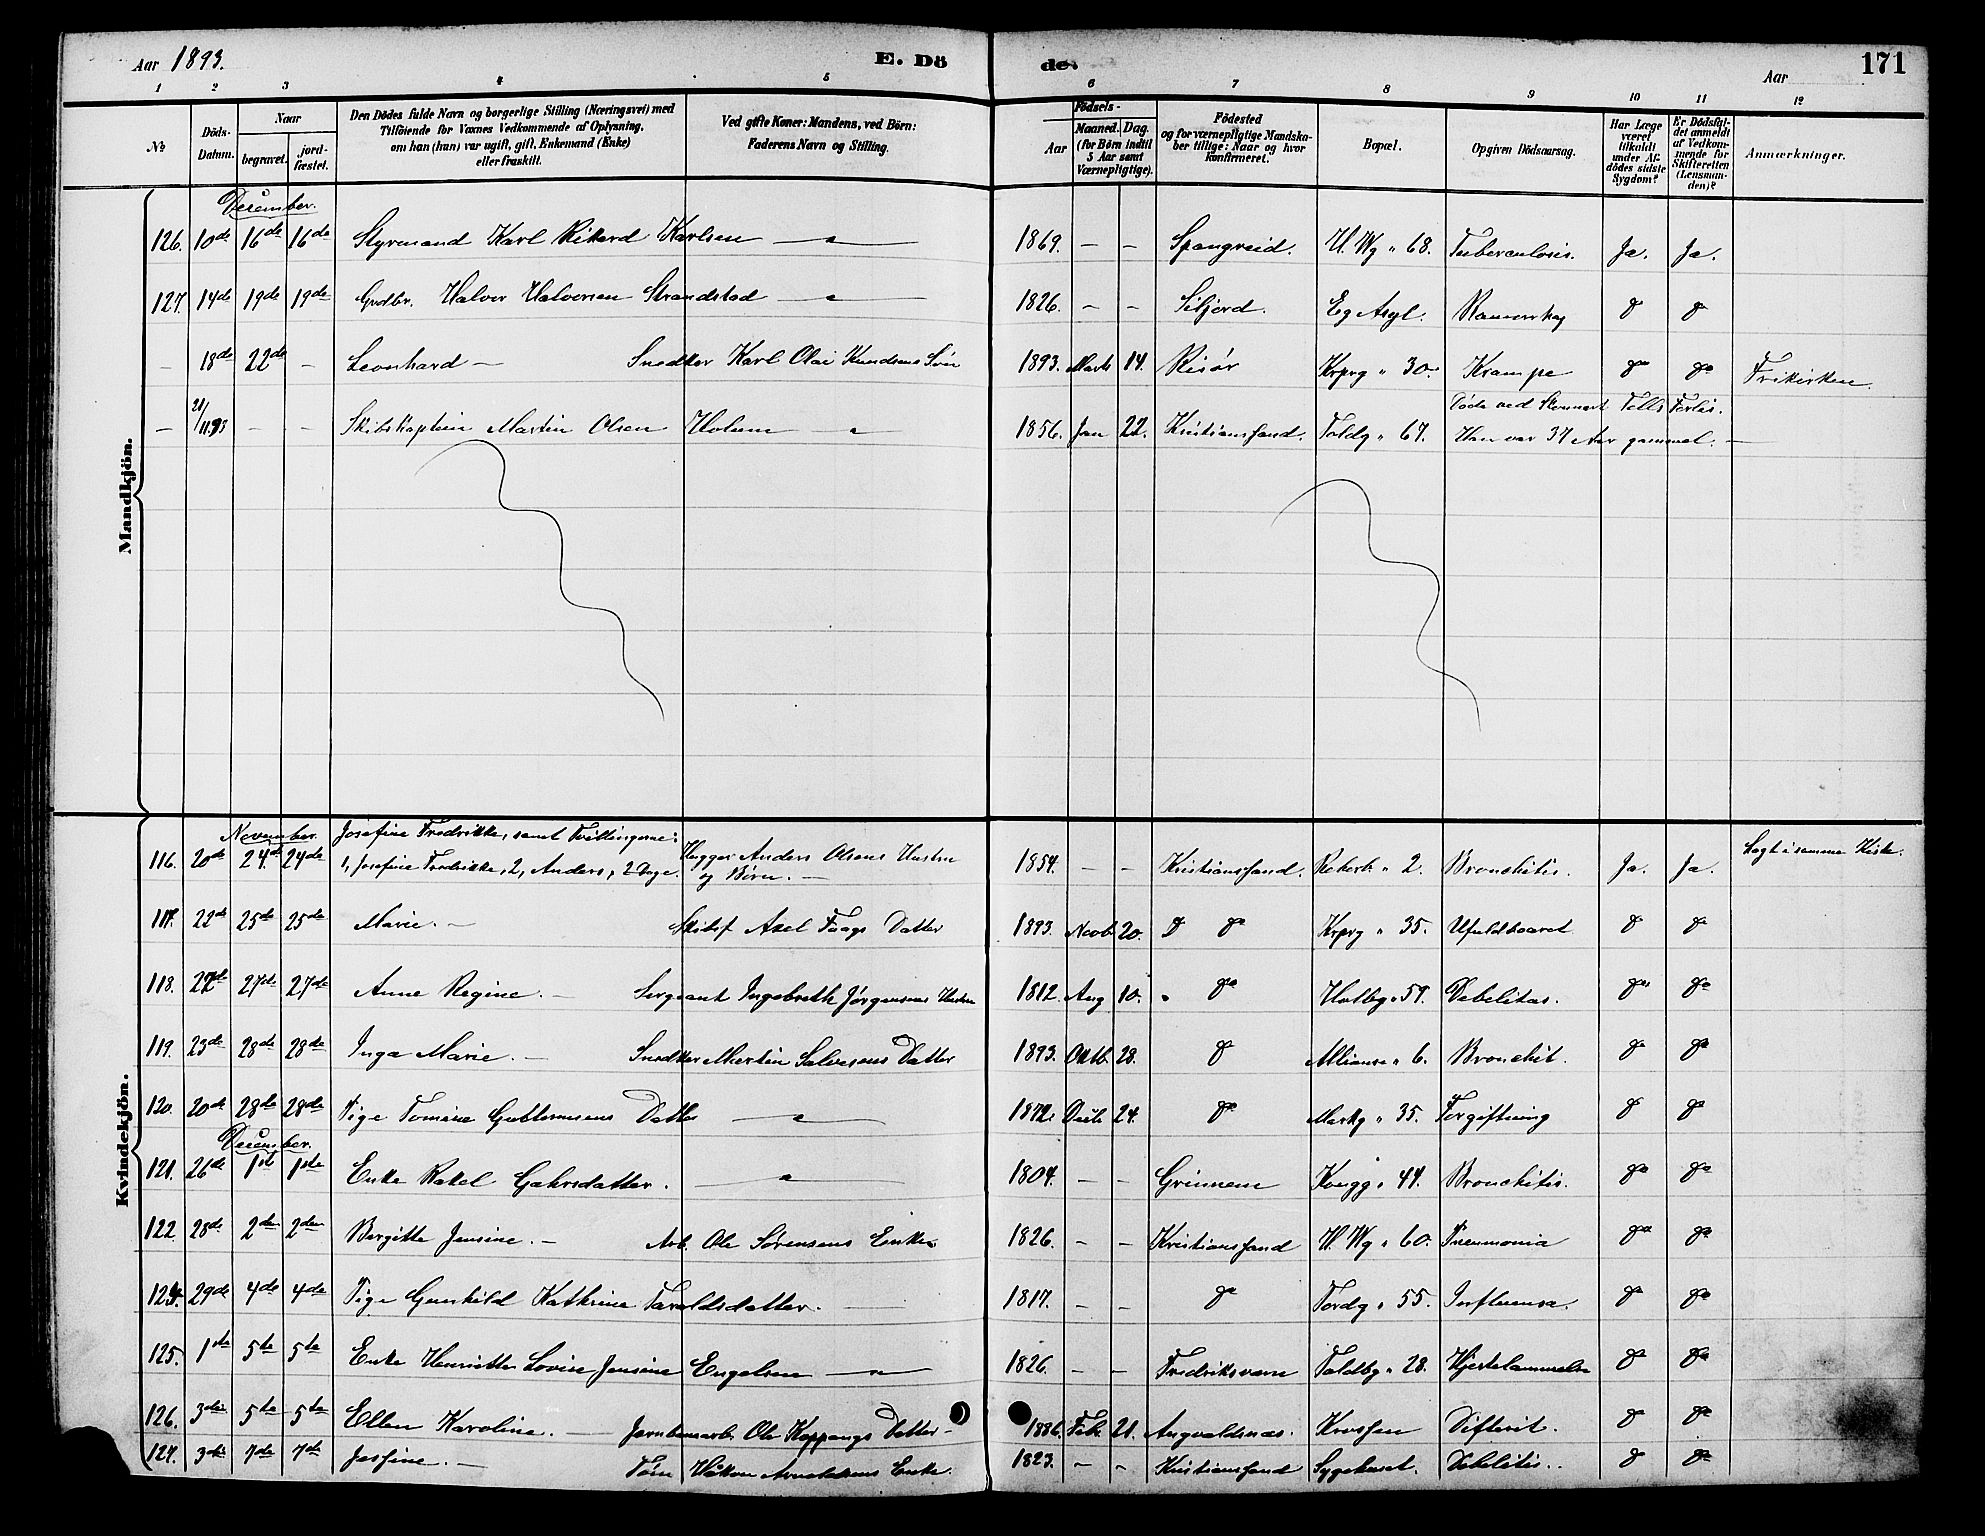 Aar 1893.
E. Dö
de.
Aar
171
1 2 3 4 5 6 7 8 9 10 11 12
No
Döds-Datum.
Naar
begravet.
jord-fæstet.
Den Dödes fulde Navn og borgerlige Stilling (Næringsvei) med
Tilföiende for Voxnes Vedkommende af Oplysning,
om han (hun) var ugift, gift, Enkemand (Enke)
eller fraskilt.
Ved gifte Koner: Mandens, ved Börn:
Faderens Navn og Stilling.
Födsels-
Aar
Maaned. Dag.
(for Börn indtil
5 Aar samt
Værnepligtige).
Födested
og for værnepligtige Mandska-
ber tillige: Naar og hvor
konfirmeret.
Bopæl.
Opgiven Dödsaarsag.
Har Læge
været
tilkaldt
under Af-
dödes sidste
Sygdom?
Er Dödsfal-
det anmeldt
af Vedkom-
mende for
Skifteretten
(Lensman-
den)?
Anmærkninger.
Mandkjön.
December.
126. 10de 16de 16de Styrmand Karl Rikard Karlsen — " — 1869. — — Spangreid. V. Wg " 68. Tuberculosis. Ja. Ja.
127. 14de 19de 19de Grdbr. Halvor Halvorsen Strandstad — " — 1826. — — Siljord. Eg Asyl. do do
— 18de 22de — Leonhard — Snedker Karl Olai Knudsens Sön 1893. Marts 14. Risör Krprg " 30. Krampe do do Frikirken
— 21/11 93 — — Skibskaptein Martin Olsen Holum — " — 1856. Jan 22. Kristianssand. Toldg " 67. Döde ved Forlis.
Han var 37 Aar gammel. —
Kvindekjön.
November.
116. 20de 24de 24de Josefine Fredrikke, samt Tvillingerne:
1, Josefine Fredrikke, 2, Anders, 2 Dage. Hugger Anders Olsens Hustru
og Börn. — 1854. — — Kristianssand. Rekerb. " 2. Bronchitis. Ja. Ja. Lagt i samme Kiste.
117. 22de 25de 25de Marie. — Skibsf Axel Faags Datter 1893. Novb. 20. do Krprg " 35. Ufuldbaaret do do
118. 22de 27de 27de Anne Regine. — Sergeant Ingebreth Jörgensens Hustru 1812. Aug 10. " do Holbg " 59. Debelitas. do do
119. 23de 28de 28de Inga Marie. — Snedker Martin Salvesens Datter 1893. Oktb. 28. do Alliance " 6. Bronchit. do do
120. 20de 28de 28de Pige Tomine Guttormsens Datter — " — 1872. Decb 24. do Markg " 35. Forgiftning do do
December.
121. 26de 1ste 1ste Enke Rakel Gahrsdatter. — " — 1804. — — Grinnem Kongg " 44. Bronchitis. do do
122 28de 2den 2den Bergitte Jensine. — Arb. Ole Sörensens Enke. 1826. — — Kristianssand V. Wg " 60. Pneumonia do do
124. 29de 4de 4de Pige Gunhild Kathrine Taraldsdatter. — 1817. — — do Tordg " 55. Influensa. do do
125. 1ste 5te 5te Enke Henriette Lovise Jensine Engelsen — " — 1826. — — Fredriksværn Toldbg " 28. Hjertelammelse do do
126. 3die 5te 5te Ellen Karoline. — Jernbanearb. Ole Koppangs Datter — 1886. Feb. 21. Augvaldsnæs. Krossen Difterit. do do
127. 3die 7de 7de Josfine. — Håkon Arnoldsens Enke. 1823. — — Kristianssand Sygehuset. Debelitis. do do